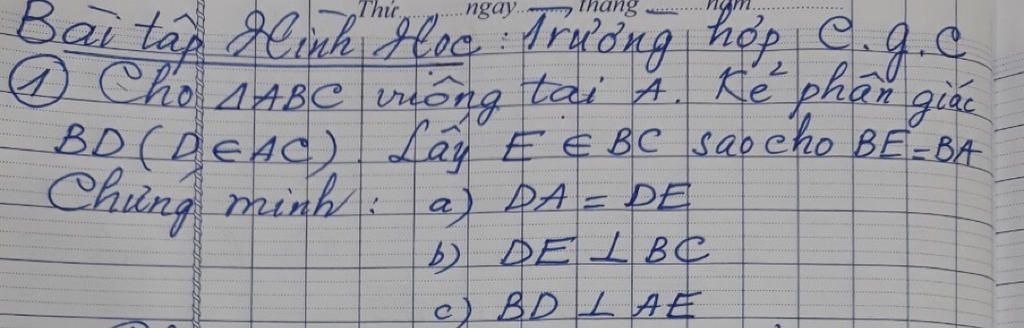 Thứ ngày tháng năm
Bài tập Hình Học : Trường hợp C.g.C
① Cho ΔABC vuông tại A. Kẻ phân giác
BD (D ∈ AC). Lấy E ∈ BC sao cho BE = BA
Chứng minh : a) DA = DE
b) DE ⊥ BC
c) BD ⊥ AE